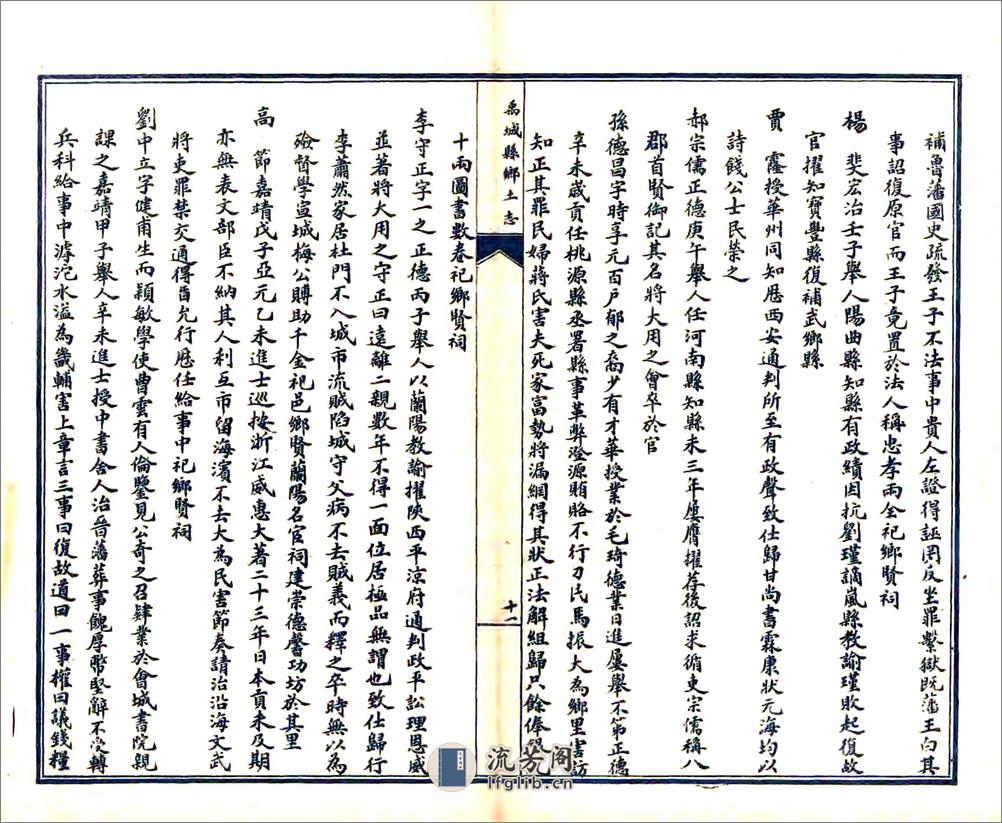 補魯藩國史疏發王子不法事中貴人左證得誣罔反坐罪繫獄既藩王白其
事詔復原官而王子竟置於法人稱忠孝兩全祀鄉賢祠
楊　斐宏治壬子舉人陽曲縣知縣有政績因抗劉瑾謫嵐縣教諭瑾敗起復故
官擢知寶豐縣復補武鄉縣
賈　靈授華州同知歷西安通判所至有政聲致仕歸甘尚書霖康狀元海均以
詩餞公士民榮之
郝宗儒正德庚午舉人任河南縣知縣未三年屢膺擢荐後詔求循吏宗儒稱八
郡首賢御記其名將大用之會卒於官
孫德昌字時享元百戶郁之裔少有才華授業於毛琦德業日進屢舉不第正德
辛未歲貢任桃源縣丞署縣事革弊澄源賄賂不行刀民馬振大為鄉里害訪
知正其罪民婦蔣氏害夫死家富勢將漏網得其狀正法解組歸只餘俸
禹城縣鄉土志
十一
十兩圖書數卷祀鄉賢祠
李守正字一之正德丙子舉人以蘭陽教諭擢陝西平涼府通判政平訟理恩威
並著將大用之守正曰遠離二親數年不得一面位居極品無謂也致仕歸行
李蕭然家居杜門不入城市流賊陷城守父病不去賊義而釋之卒時無以為
殮督學宣城梅公賻助千金祀邑鄉賢蘭陽名宦祠建崇德馨功坊於其里
高　節嘉靖戊子亞元乙未進士巡按浙江威惠大著二十三年日本貢未及期
亦無表文部臣不納其人利互市留海濱不去大為民害節奏請治沿海文武
將吏罪禁交通得旨允行歷任給事中祀鄉賢祠
劉中立字健甫生而穎敏學使曹雲有人倫鑒見公奇之召肄業於會城書院親
課之嘉靖甲子舉人辛未進士授中書舍人治晉藩葬事餽厚幣堅辭不受轉
兵科給事中滹沱水溢為畿輔害上章言三事曰復故道曰一事權曰議錢糧
流芳阁
lfglib.cn